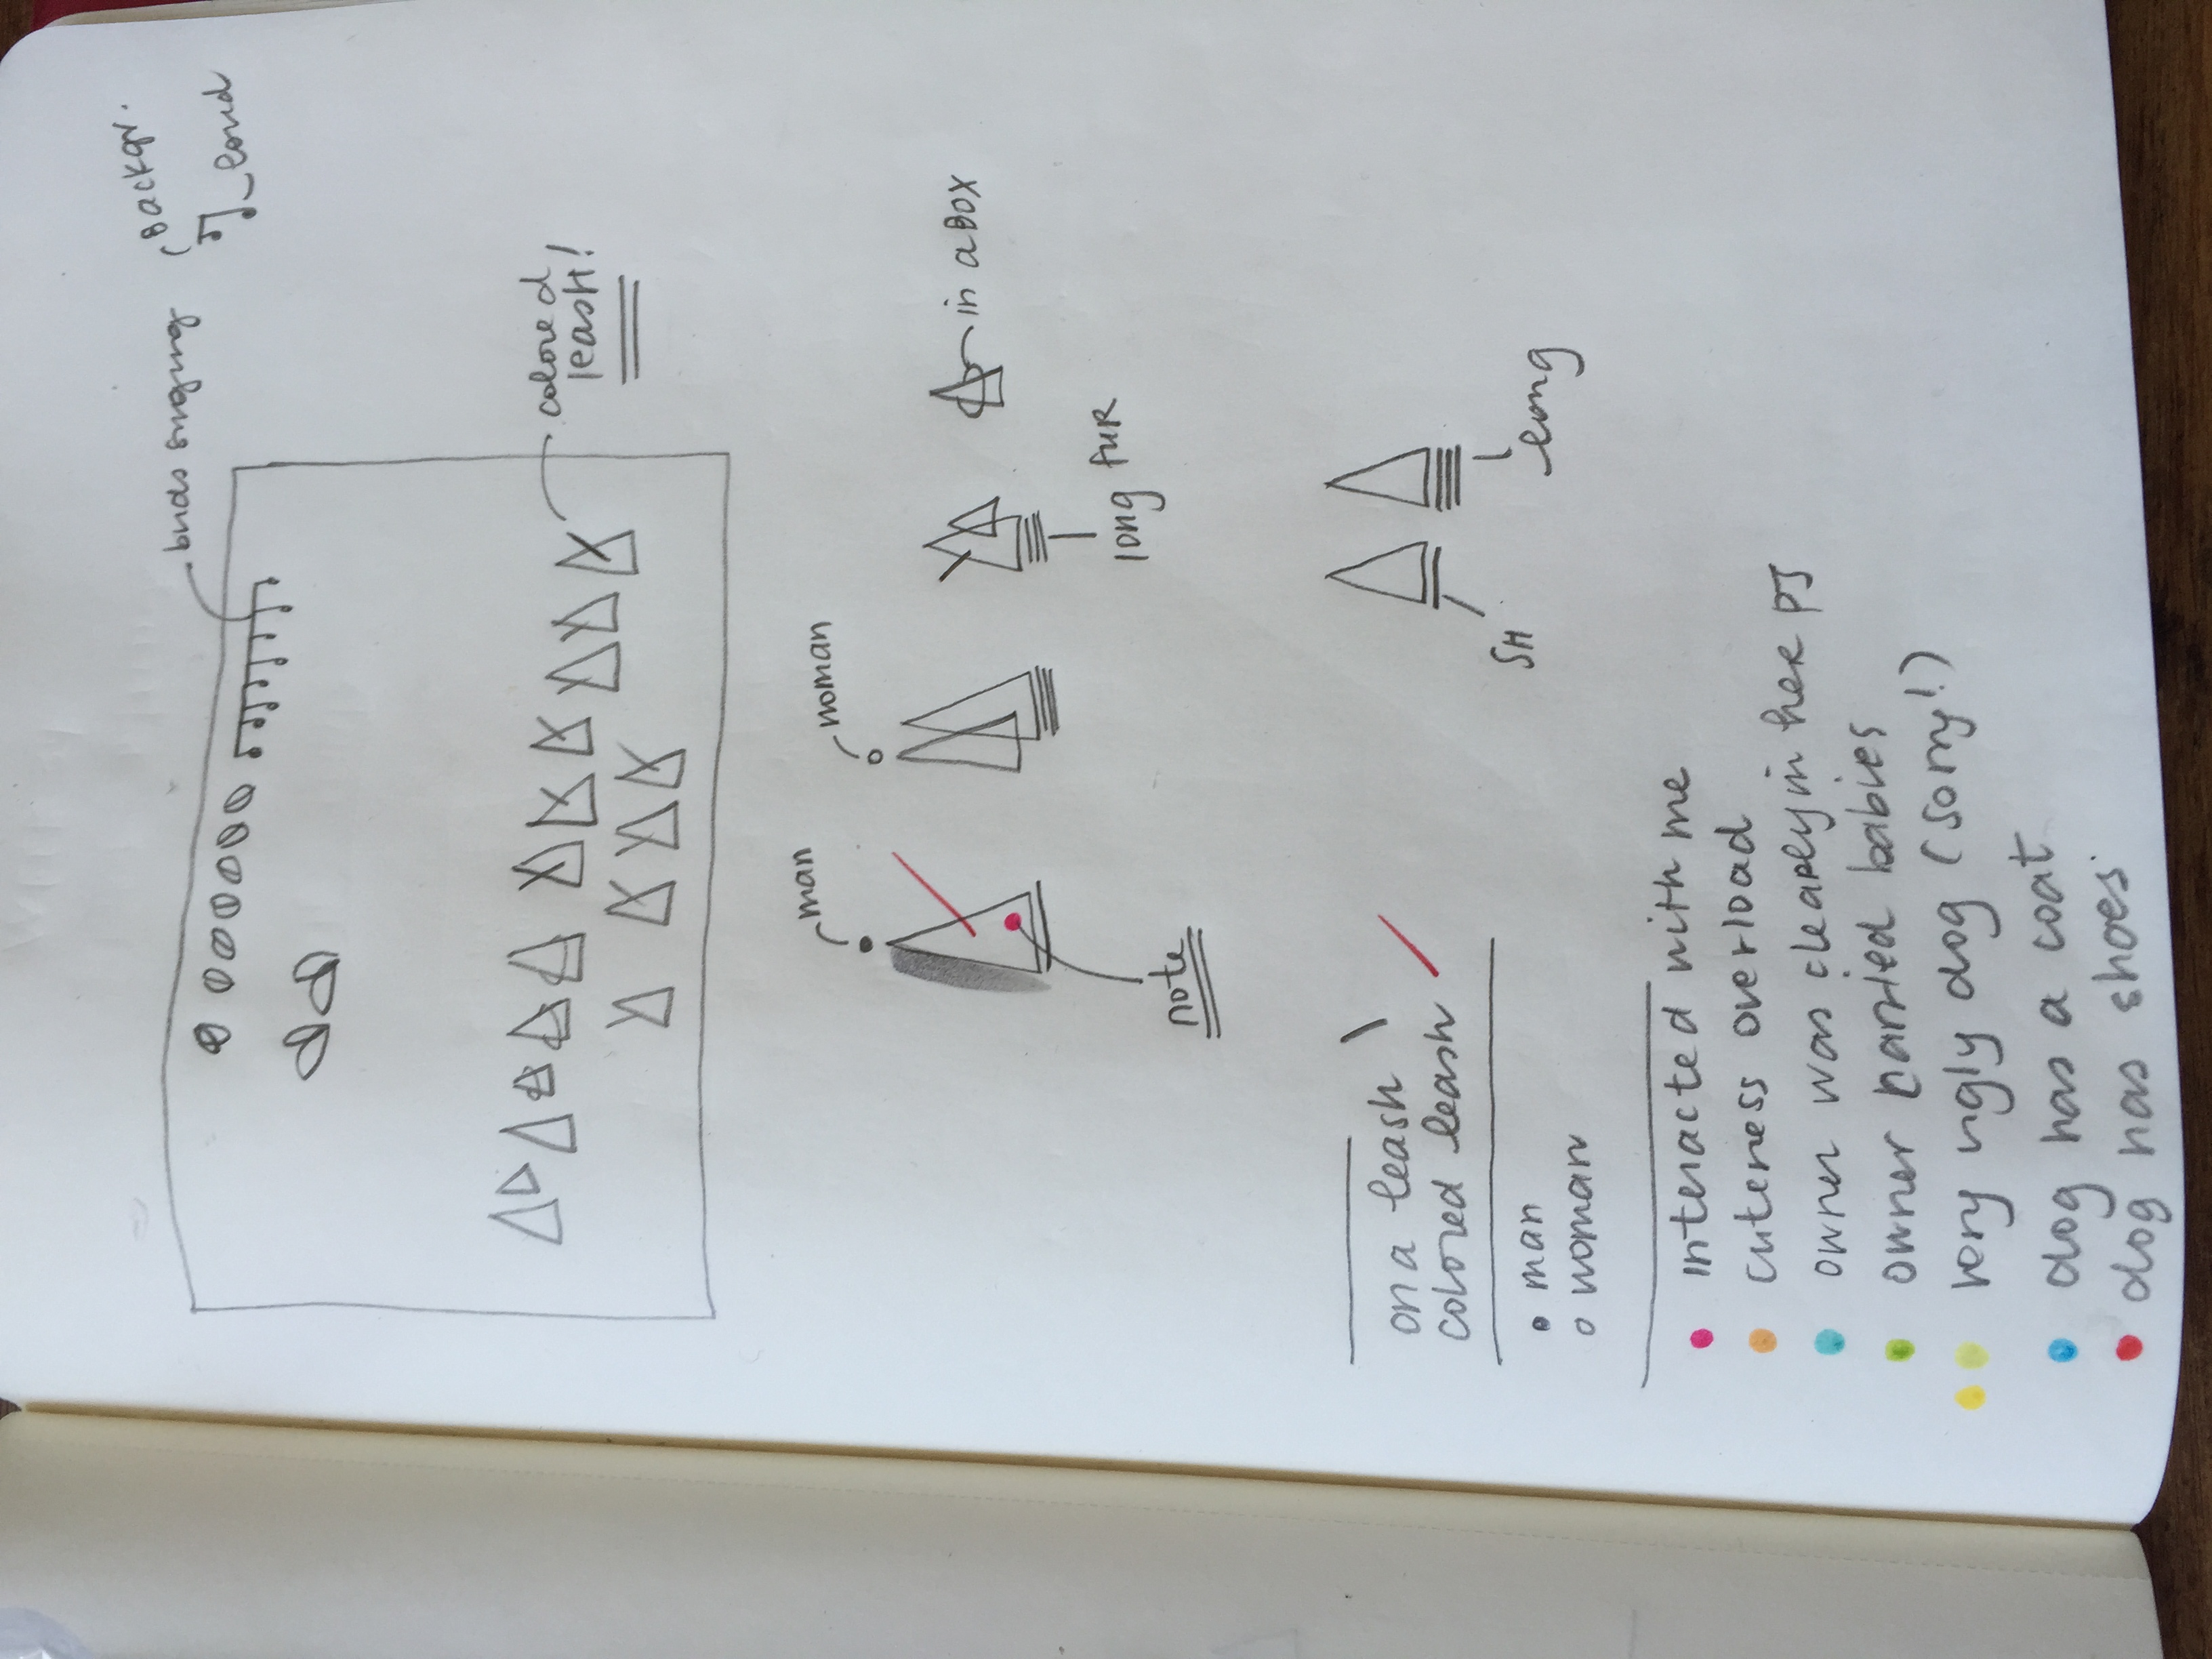 birds singing (Backgr.
loud
colored
leash!
man
woman
long fur
in a Box
note
on a leash
colored leash
SH
long
man
woman
interacted with me
cuteness overload
owner was clearly in her PJ
owner carried babies
very ugly dog (sorry!)
dog has a coat
dog has shoes.